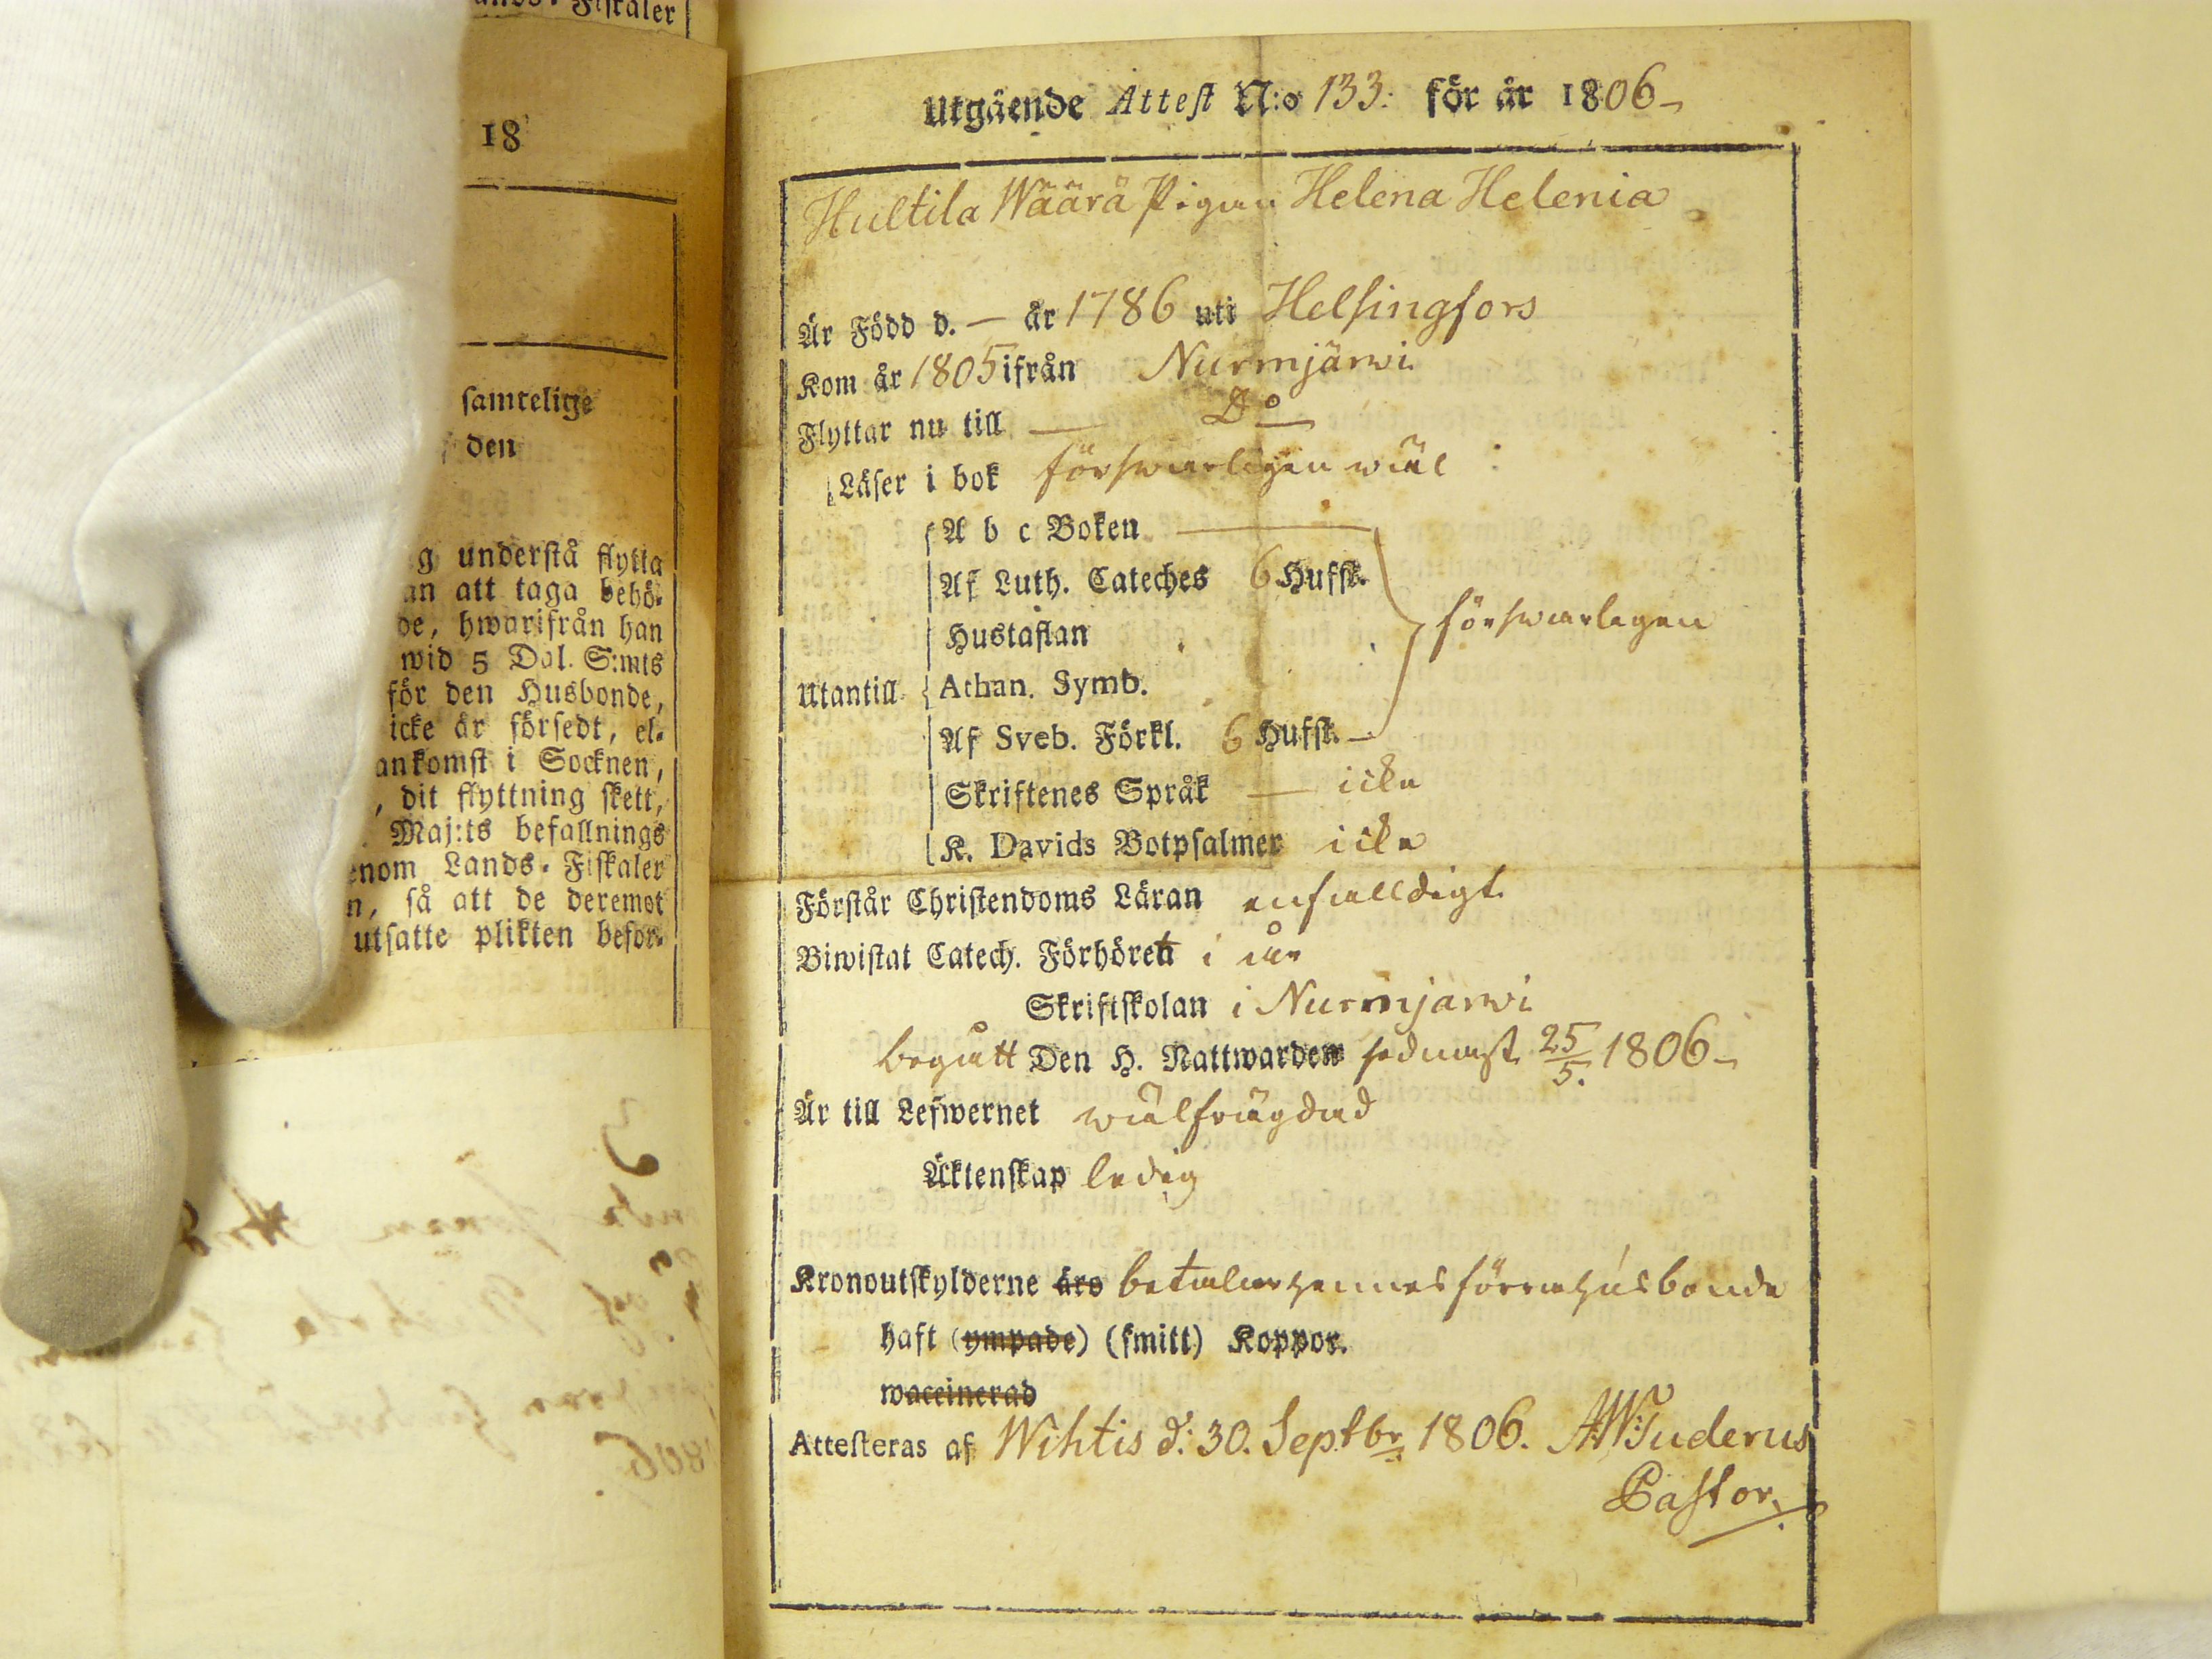 ands. Fiskaler
18
samtelige
den
g understå flytta
an att taga behö-
de, hwarifrån han
wid 5 Dal. S:mts
för den Husbonde,
icke är försedt, el-
ankomst i Socknen,
, dit flyttning skett,
Maj:ts befallnings
enom Lands-Fiskaler
n, så att de deremot
utsatte plikten befor-
Utgående Attest N:o 133. för år 1806
Hultila Wäärä Pigan Helena Helenia
Är Född d. — år 1786 uti Helsingfors
Kom år 1805 ifrån Nurmjärwi
Flyttar nu till — Do
Läser i bok förswarligen wäl
A b c Boken
Af Luth. Cateches 6 Hufst.
Hustaflan
förswarligen
Utantill Athan. Symb.
Af Sveb. Förkl. 6 Hufst.
Skriftenes Språk — icke
K. Davids Botpsalmer icke
Förstår Christendoms Läran enfalldigt
Biwistat Catech. Förhöret i år
Skriftskolan i Nurmjärwi
begått Den H. Nattwarden sednast 25/5. 1806
Är till Lefwernet wälfrägdad
Äktenskap ledig
Kronoutskylderne äro betalar hennes förra husbonde
haft (ympade) (smitt) Koppor.
waccinerad
Attesteras af Wihtis d. 30. Septbr. 1806. AWTuderus
Pastor